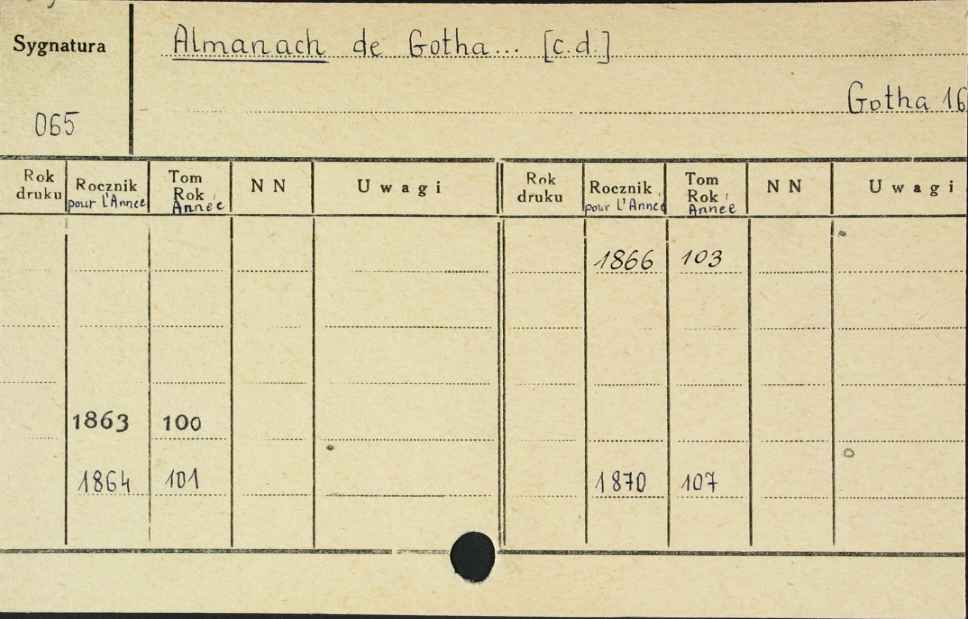 Sygnatura
Almanach de Gotha... [c.d.]
Gotha 16
065
Rok druku
Rocznik pour L'Année
Tom Rok Année
NN
Uwagi
Rok druku
Rocznik pour L'Année
Tom Rok Année
NN
Uwagi
1866 103
1863 100
1864 101
1870 107